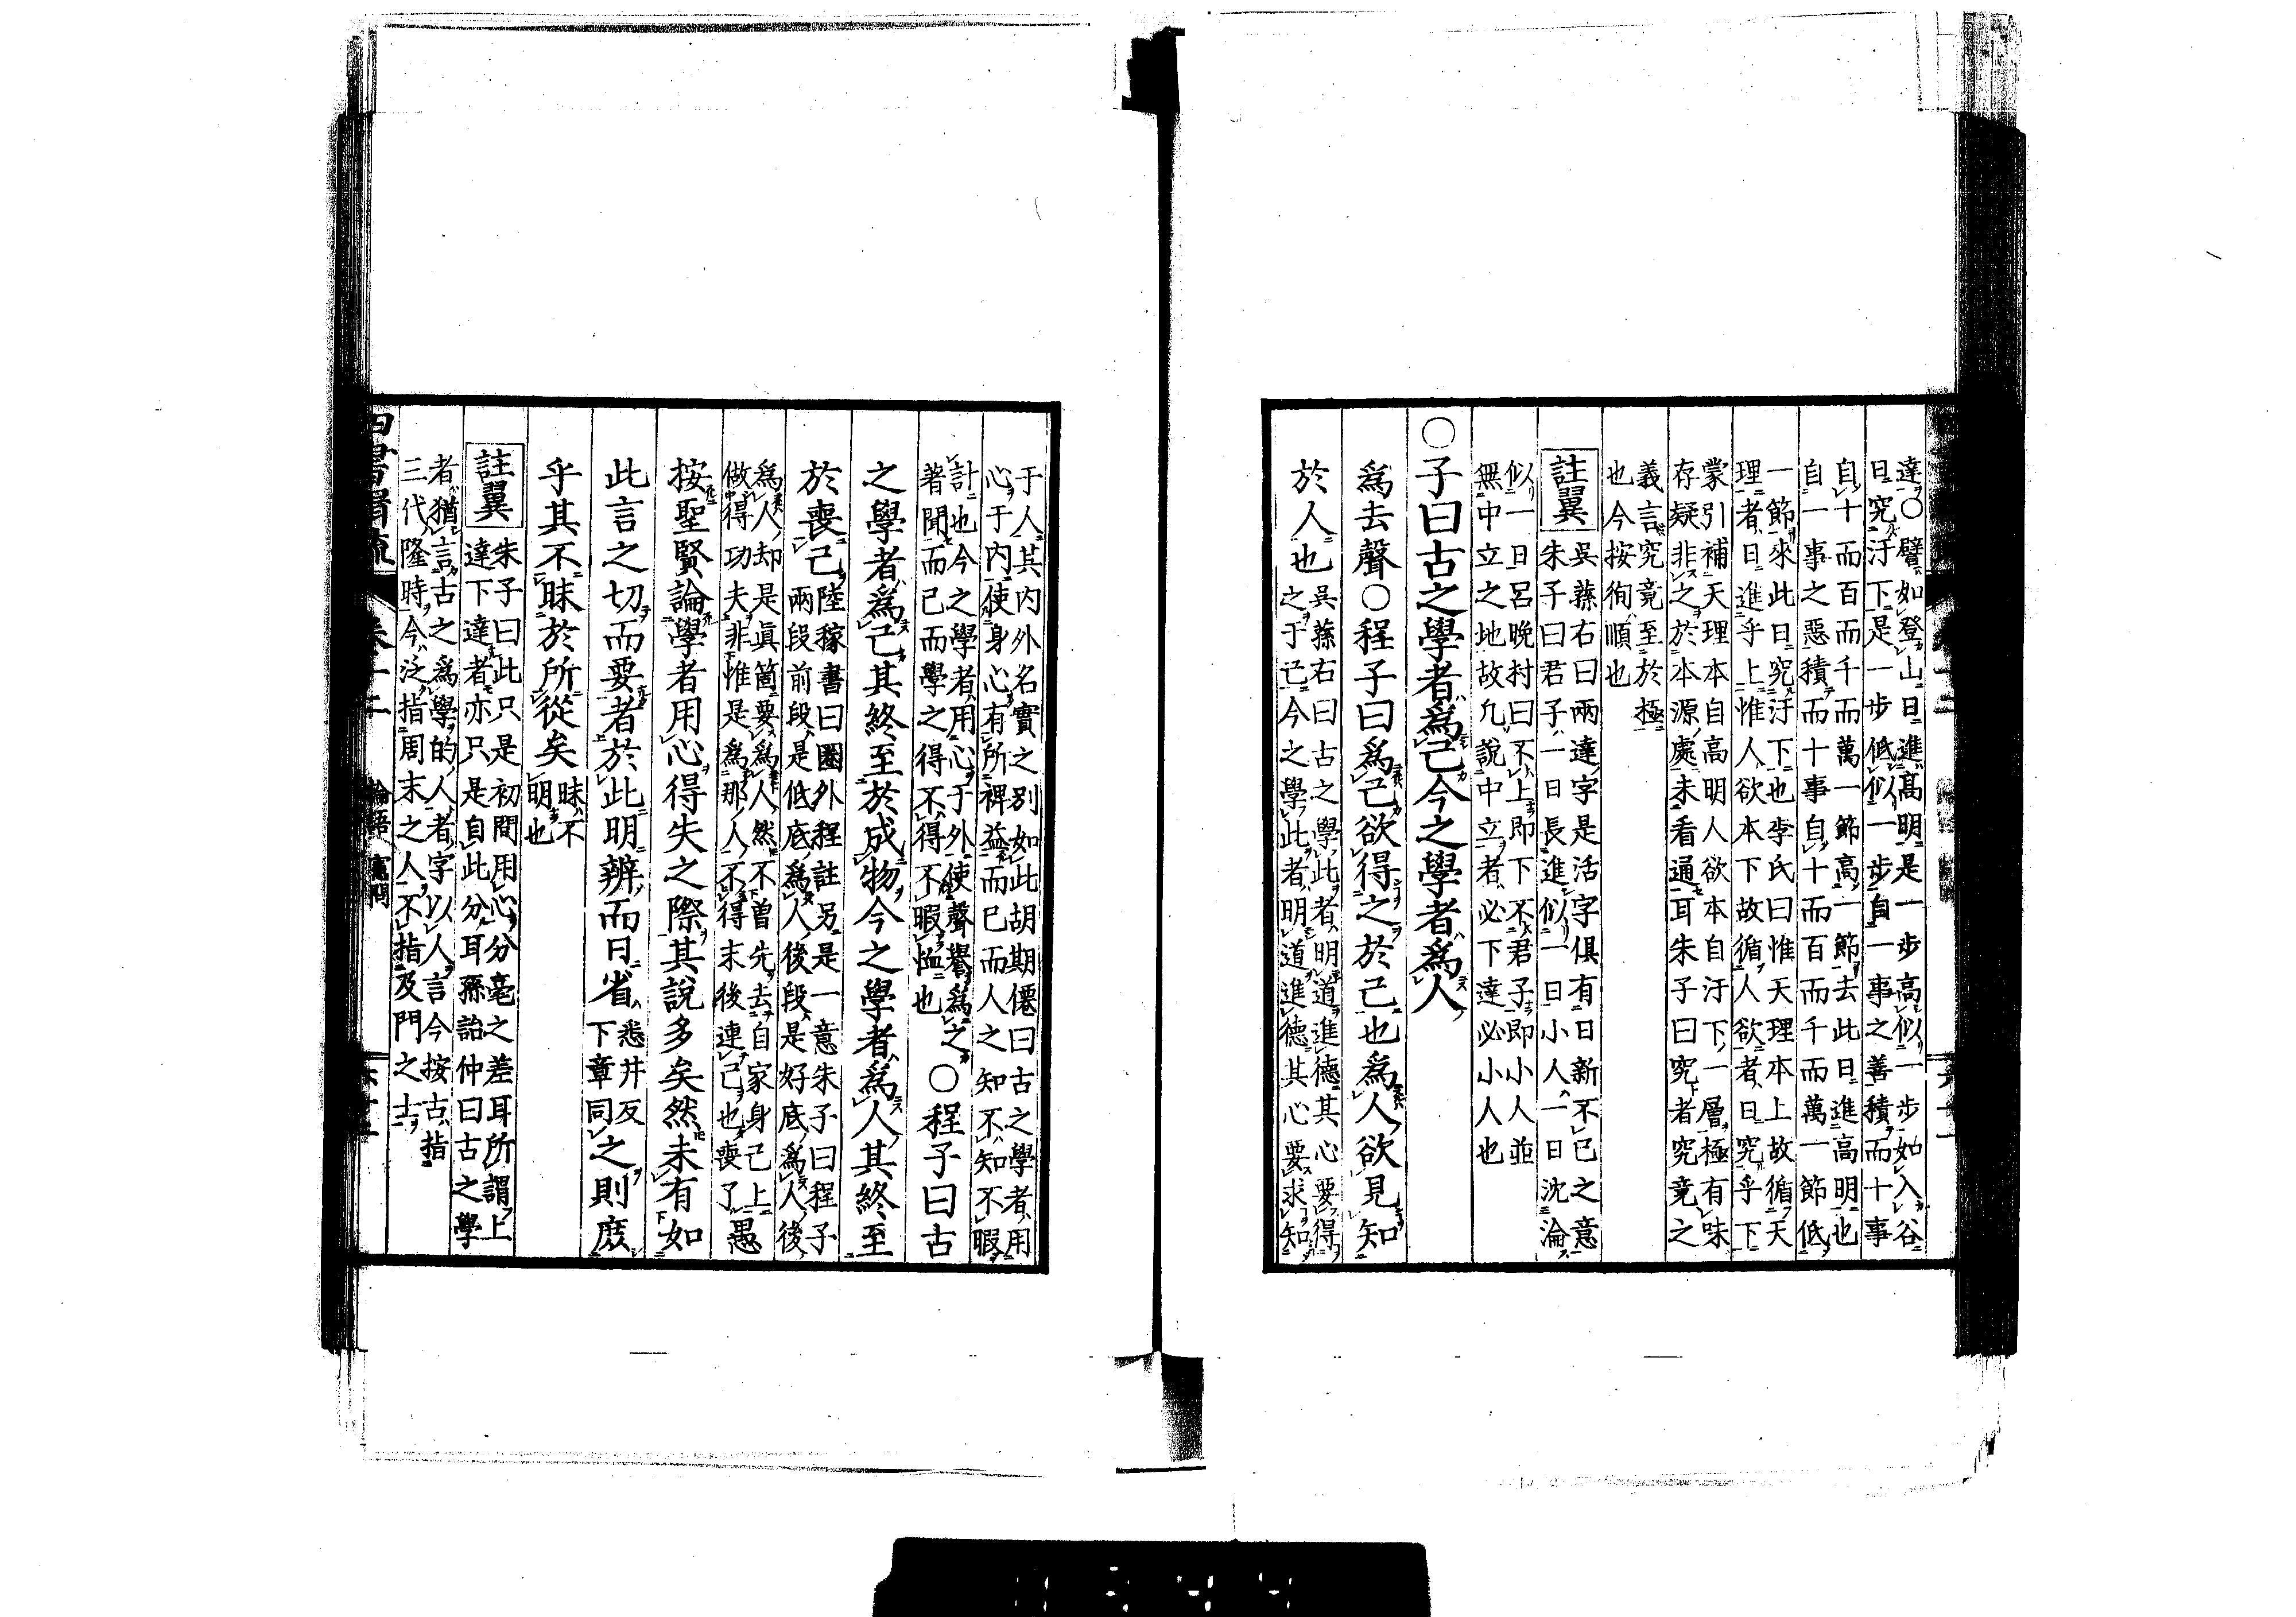 達○譬如登山日進高明是一步高似一步如入谷
日究汙下是一步低似一步自一事之善積而十事
自十而百而千而萬一節高一節去此日進高明也
自一事之惡積而十事自十而百而千而萬一節低
一節來此日究汙下也李氏曰惟天理本上故循天
理者日進乎上惟人欲本下故循人欲者日究乎下
蒙引補天理本自高明人欲本自汙下一層極有味
存疑非之於本源處未看通耳朱子曰究者究竟之
義言究竟至於極
也今按徇順也
註翼
吳蓀右曰兩達字是活字俱有日新不已之意
朱子曰君子一日長進似一日小人一日沈淪
似一日呂晚村曰不上即下不君子即小人並
無中立之地故凡說中立者必下達必小人也
○子曰古之學者爲己今之學者爲人
爲去聲○程子曰爲己欲得之於己也爲人欲見知
於人也
吳蓀右曰古之學此者明道進德其心要得
之于己今之學此者明道進德其心要求知
于人其内外名實之別如此胡期僊曰古之學者用
心于内使身心有所裨益而已而人之知不知不暇
計也今之學者用心于外使聲譽爲之
著聞而已而學之得不得不暇恤也
○程子曰古
之學者爲己其終至於成物今之學者爲人其終至
於喪己
陸稼書曰圈外程註另是一意朱子曰程子
兩段前段是低底爲人後段是好底爲人後
爲人却是眞箇要爲人然不曾先去自家身己上
做得功夫非惟是爲那人不得末後連己也喪了
愚
按聖賢論學者用心得失之際其說多矣然未有如
此言之切而要者於此明辨而日省
悉井反
下章同
之則庶
乎其不昧於所從矣
昧不
明也
註翼
朱子曰此只是初間用心分毫之差耳所謂上
達下達者亦只是自此分耳孫詒仲曰古之學
者猶言古之爲學的人者字以人言今按古指
三代隆時今泛指周末之人不指及門之士
卷十二
論語
憲問